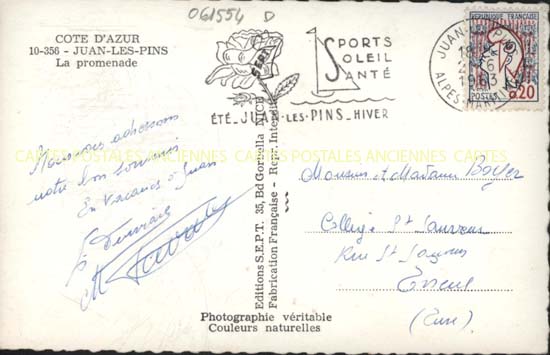 061554 D
COTE D'AZUR
10-356 - JUAN-LES-PINS
La promenade
SPORTS
SOLEIL
SANTÉ
ÉTÉ_JUAN-LES-PINS_HIVER
JUAN-LES-PINS
1963
ALPES-MARITIMES
REPUBLIQUE FRANÇAISE
POSTES 0.20
CARTES POSTALES ANCIENNES CARTES POSTALES ANCIENNES CARTES
Nous vous adressons
notre bon souvenir
En vacances à Juan
Monsieur et Madame Boyer
Collège St Sauveur
Rue St Jacques
(Eure)
Editions S.E.P.T. 35, Bd Gorbella NICE
Fabrication Française - Repr. Interdite
Photographie véritable
Couleurs naturelles